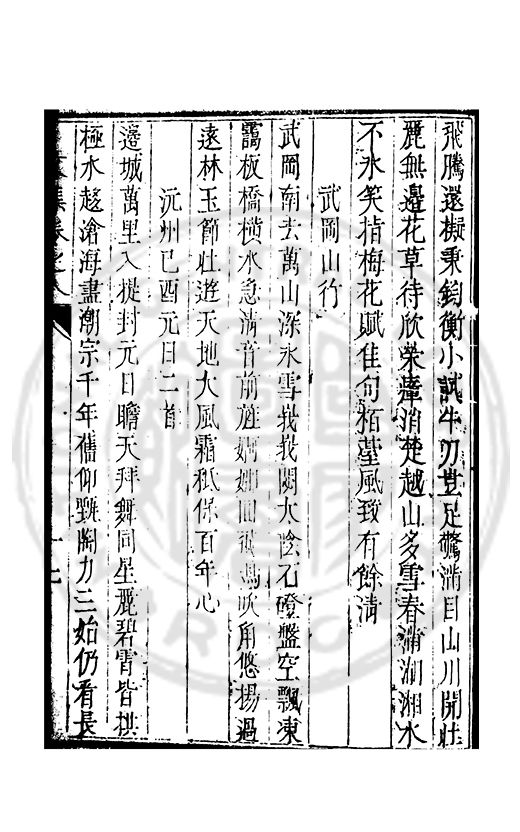 飛騰還擬秉鈞衡小試牛刃豈足驚滿目山川開壯
麗無邊花草待欣榮瘴消楚越山多雪春滿湖湘水
不冰笑指梅花賦佳句栢堂風致有餘清
武岡山行
武岡南去萬山深氷雪我我閟太陰石磴盤空飄凍
靄板橋橫水急清音前旌婀娜回彼馬吹角悠揚過
遠林玉節壯遊天地大風霜秪保百年心
沅州已酉元日二首
邊城萬里入從封元日瞻天拜舞同星麗碧霄皆拱
極水趍滄海盡潮宗千年舊仰甄陶力三始仍看長
集卷之八